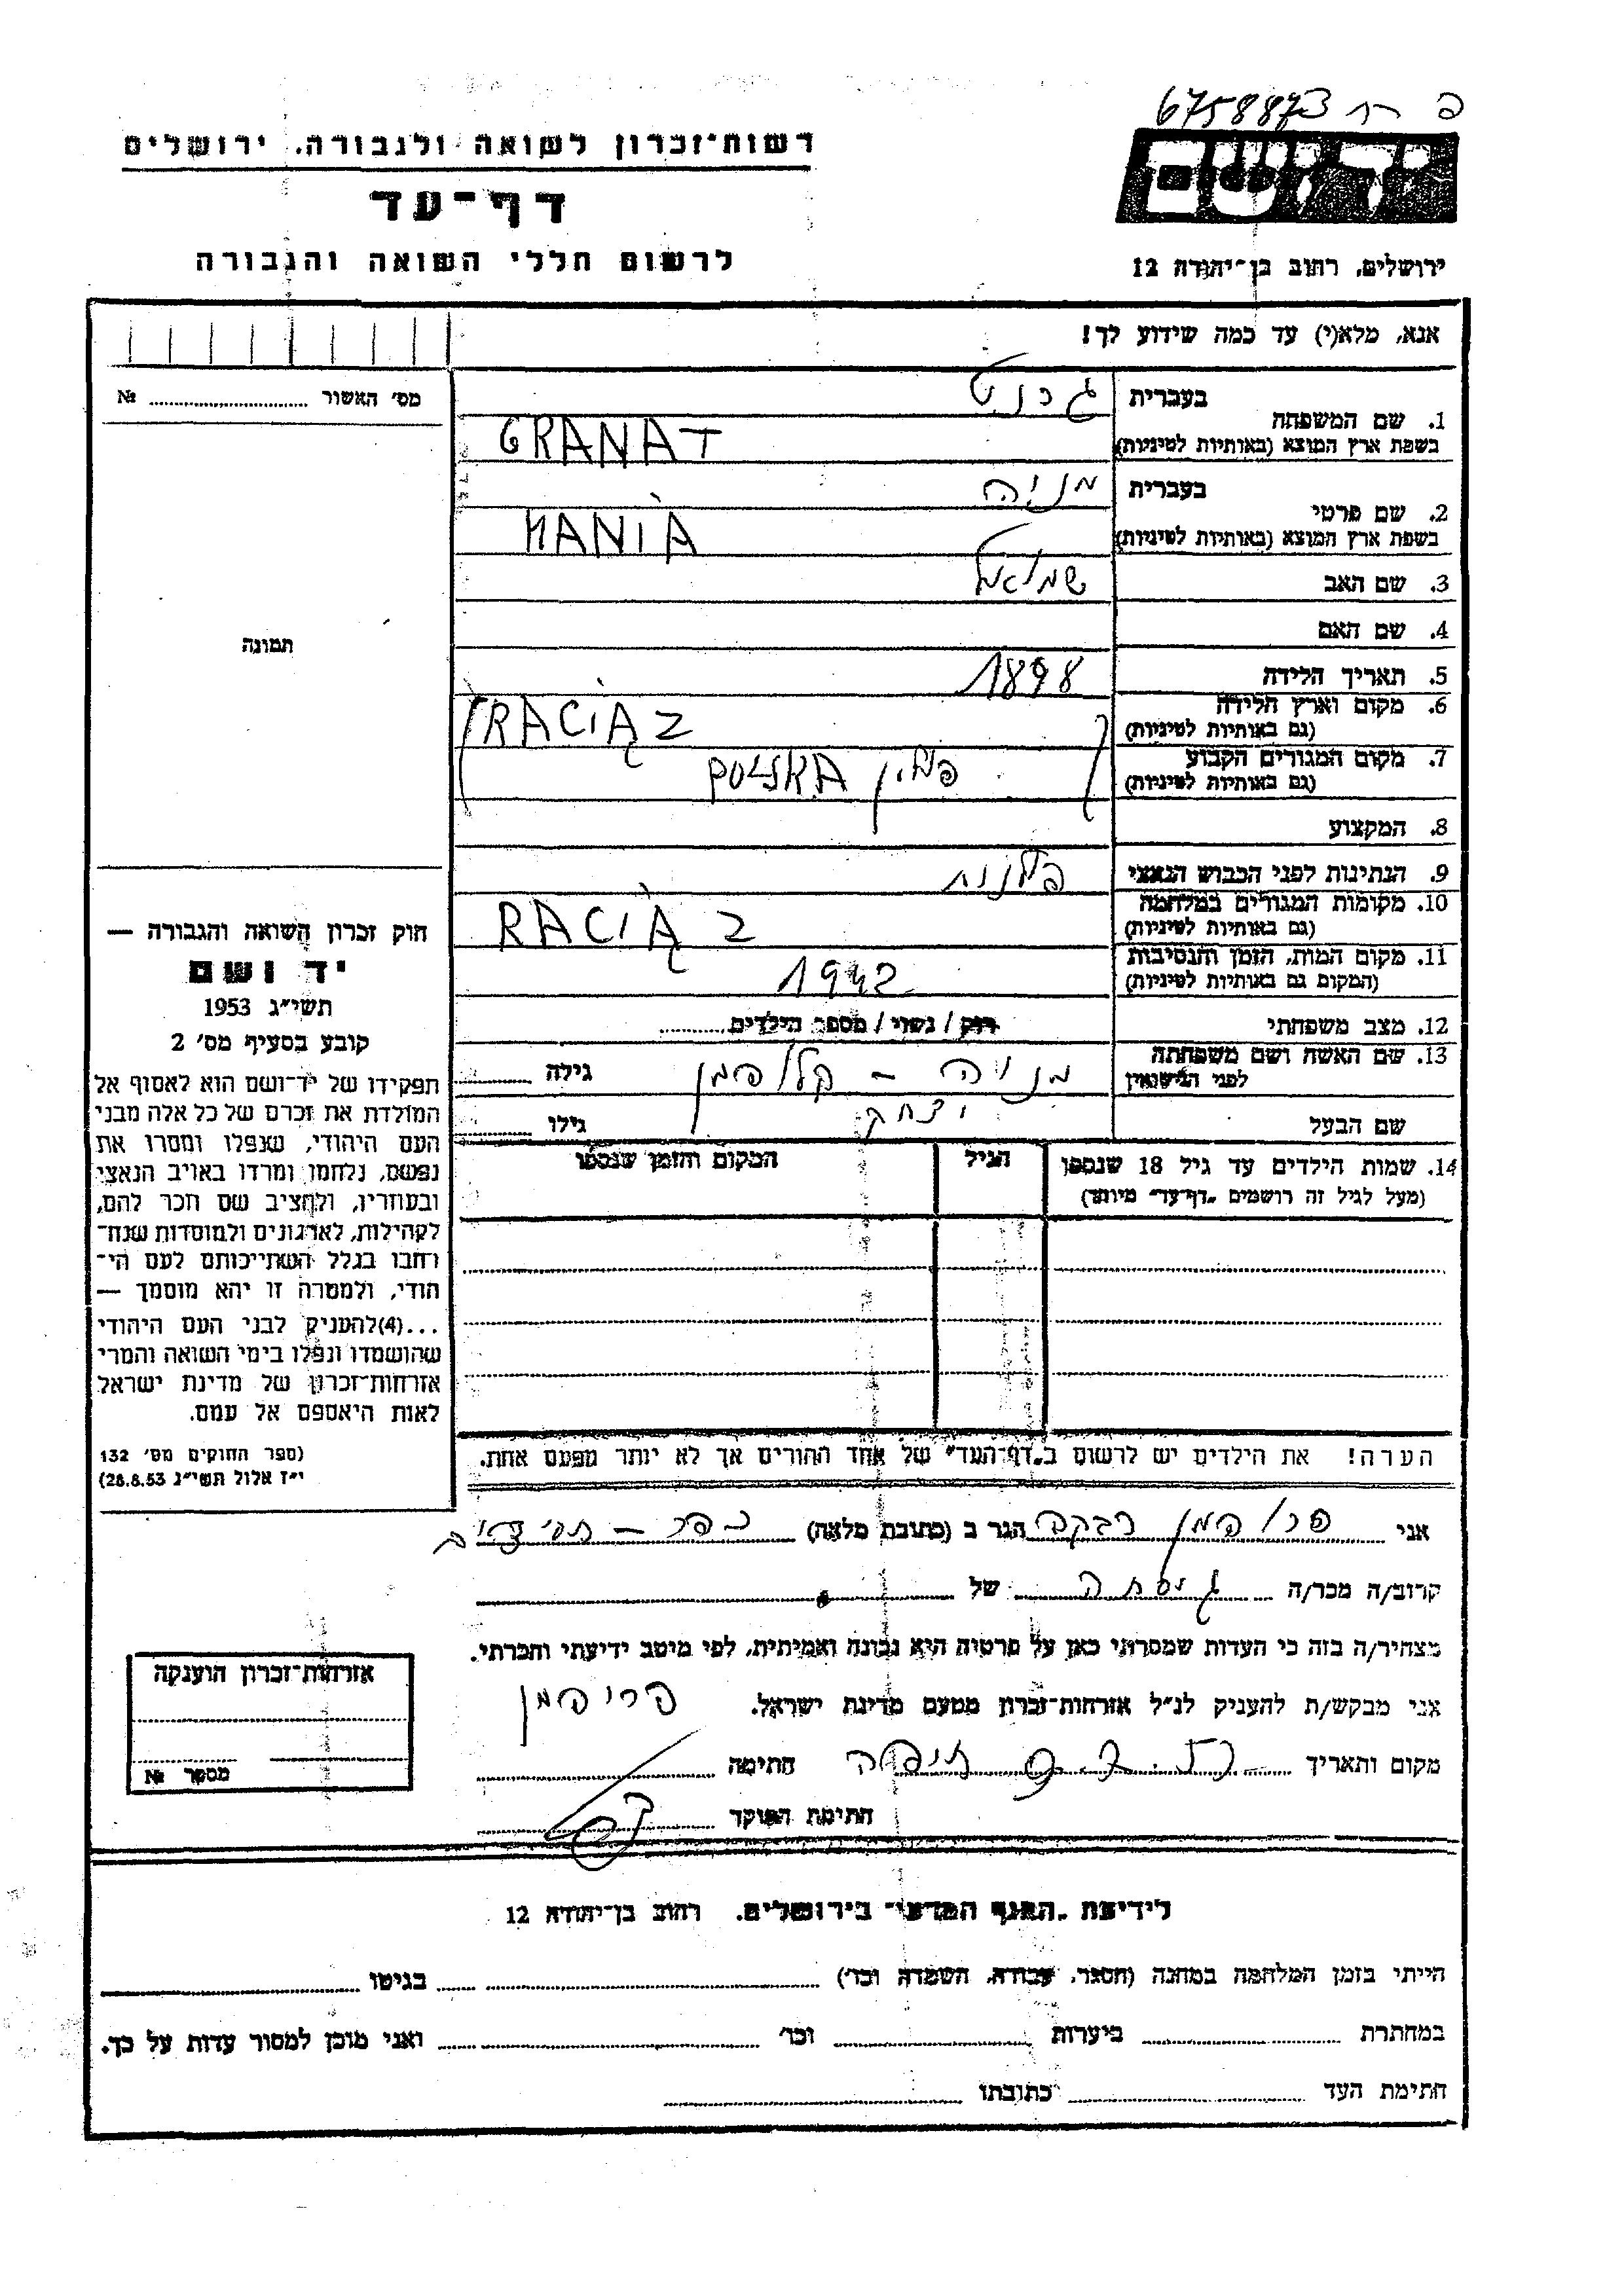 6758873
רשות-זכרון לשואה ולגבורה, ירושלים
יד ושם
דף-עד
לרשום חללי השואה והגבורה
ירושלים, רחוב בן-יהודה 12
אנא, מלא(י) עד כמה שידוע לך!
מס' האשור ........ №
תמונה
בעברית גרנט
1. שם המשפחה
בשפת ארץ המוצא (באותיות לטיניות) GRANAT
בעברית מניה
2. שם פרטי
בשפת ארץ המוצא (באותיות לטיניות) MANIA
3. שם האב שמואל
4. שם האם
5. תאריך הלידה 1898
6. מקום וארץ הלידה
(גם באותיות לטיניות) RACIĄZ
7. מקום המגורים הקבוע
(גם באותיות לטיניות) פולין POLSKA
8. המקצוע
9. הנתינות לפני הכבוש הנאצי פולנית
10. מקומות המגורים במלחמה
(גם באותיות לטיניות) RACIĄZ
11. מקום המות, הזמן והנסיבות
(המקום גם באותיות לטיניות) 1942
12. מצב משפחתי רווק / נשוי / מספר הילדים ........
13. שם האשה ושם משפחתה
לפני הנישואין מניה – קלופמן גילה ........
שם הבעל יצחק גילו ........
14. שמות הילדים עד גיל 18 שנספו הגיל המקום והזמן שנספו
(מעל לגיל זה רושמים "דף-עד" מיוחד)
הערה! את הילדים יש לרשום ב"דף-העד" של אחד ההורים אך לא יותר מפעם אחת.
חוק זכרון השואה והגבורה —
יד ושם
תשי"ג 1953
קובע בסעיף מס' 2
תפקידו של יד-ושם הוא לאסוף אל
המולדת את זכרם של כל אלה מבני
העם היהודי, שנפלו ומסרו את
נפשם, נלחמו ומרדו באויב הנאצי
ובעוזריו, ולהציב שם וזכר להם,
לקהילות, לארגונים ולמוסדות שנח-
רחבו בגלל השתייכותם לעם הי-
הודי, ולמטרה זו יהא מוסמך —
...(4)להעניק לבני העם היהודי
שהושמדו ונפלו בימי השואה והמרי
אזרחות-זכרון של מדינת ישראל
לאות היאספם אל עמם.
(ספר החוקים מס' 132
י"ז אלול תשי"ג 28.8.53)
אני פרופמן רבקה הגר ב (כתובת מלאה) כפר – חסידים
קרוב/ה מכר/ה גיסתה של
מצהיר/ה בזה כי העדות שמסרתי כאן על פרטיה היא נכונה ואמיתית, לפי מיטב ידיעתי והכרתי.
אני מבקש/ת להעניק לנ"ל אזרחות-זכרון מטעם מדינת ישראל.
מקום ותאריך חיפה חתימה
חתימת הפוקד
אזרחות-זכרון הוענקה
מספר №
לידיעת "האגף המדעי" בירושלים, רחוב בן-יהודה 12
הייתי בזמן המלחמה במחנה (הסגר, עבודה, השמדה וכו') ........ בגיטו ........
במחתרת ........ ביערות ........ וכו' ........ ואני מוכן למסור עדות על כך.
חתימת העד ........ כתובתו ........